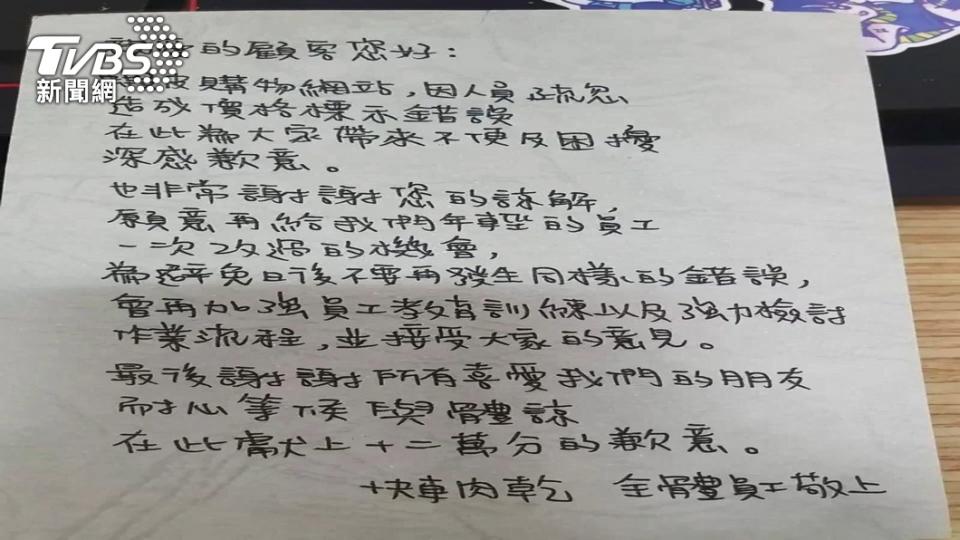 TVBS
新聞網
的顧客您好：
購物網站，因人員疏忽
造成價格標示錯誤
在此為大家帶來不便及困擾
深感歉意。
也非常謝謝您的諒解，
願意再給我們年輕的員工
一次改過的機會，
為避免日後不要再發生同樣的錯誤，
會再加強員工教育訓練以及強力檢討
作業流程，並接受大家的意見。
最後謝謝所有喜愛我們的朋友
耐心等候與體諒
在此獻上十二萬分的歉意。
快車肉乾 全體員工敬上